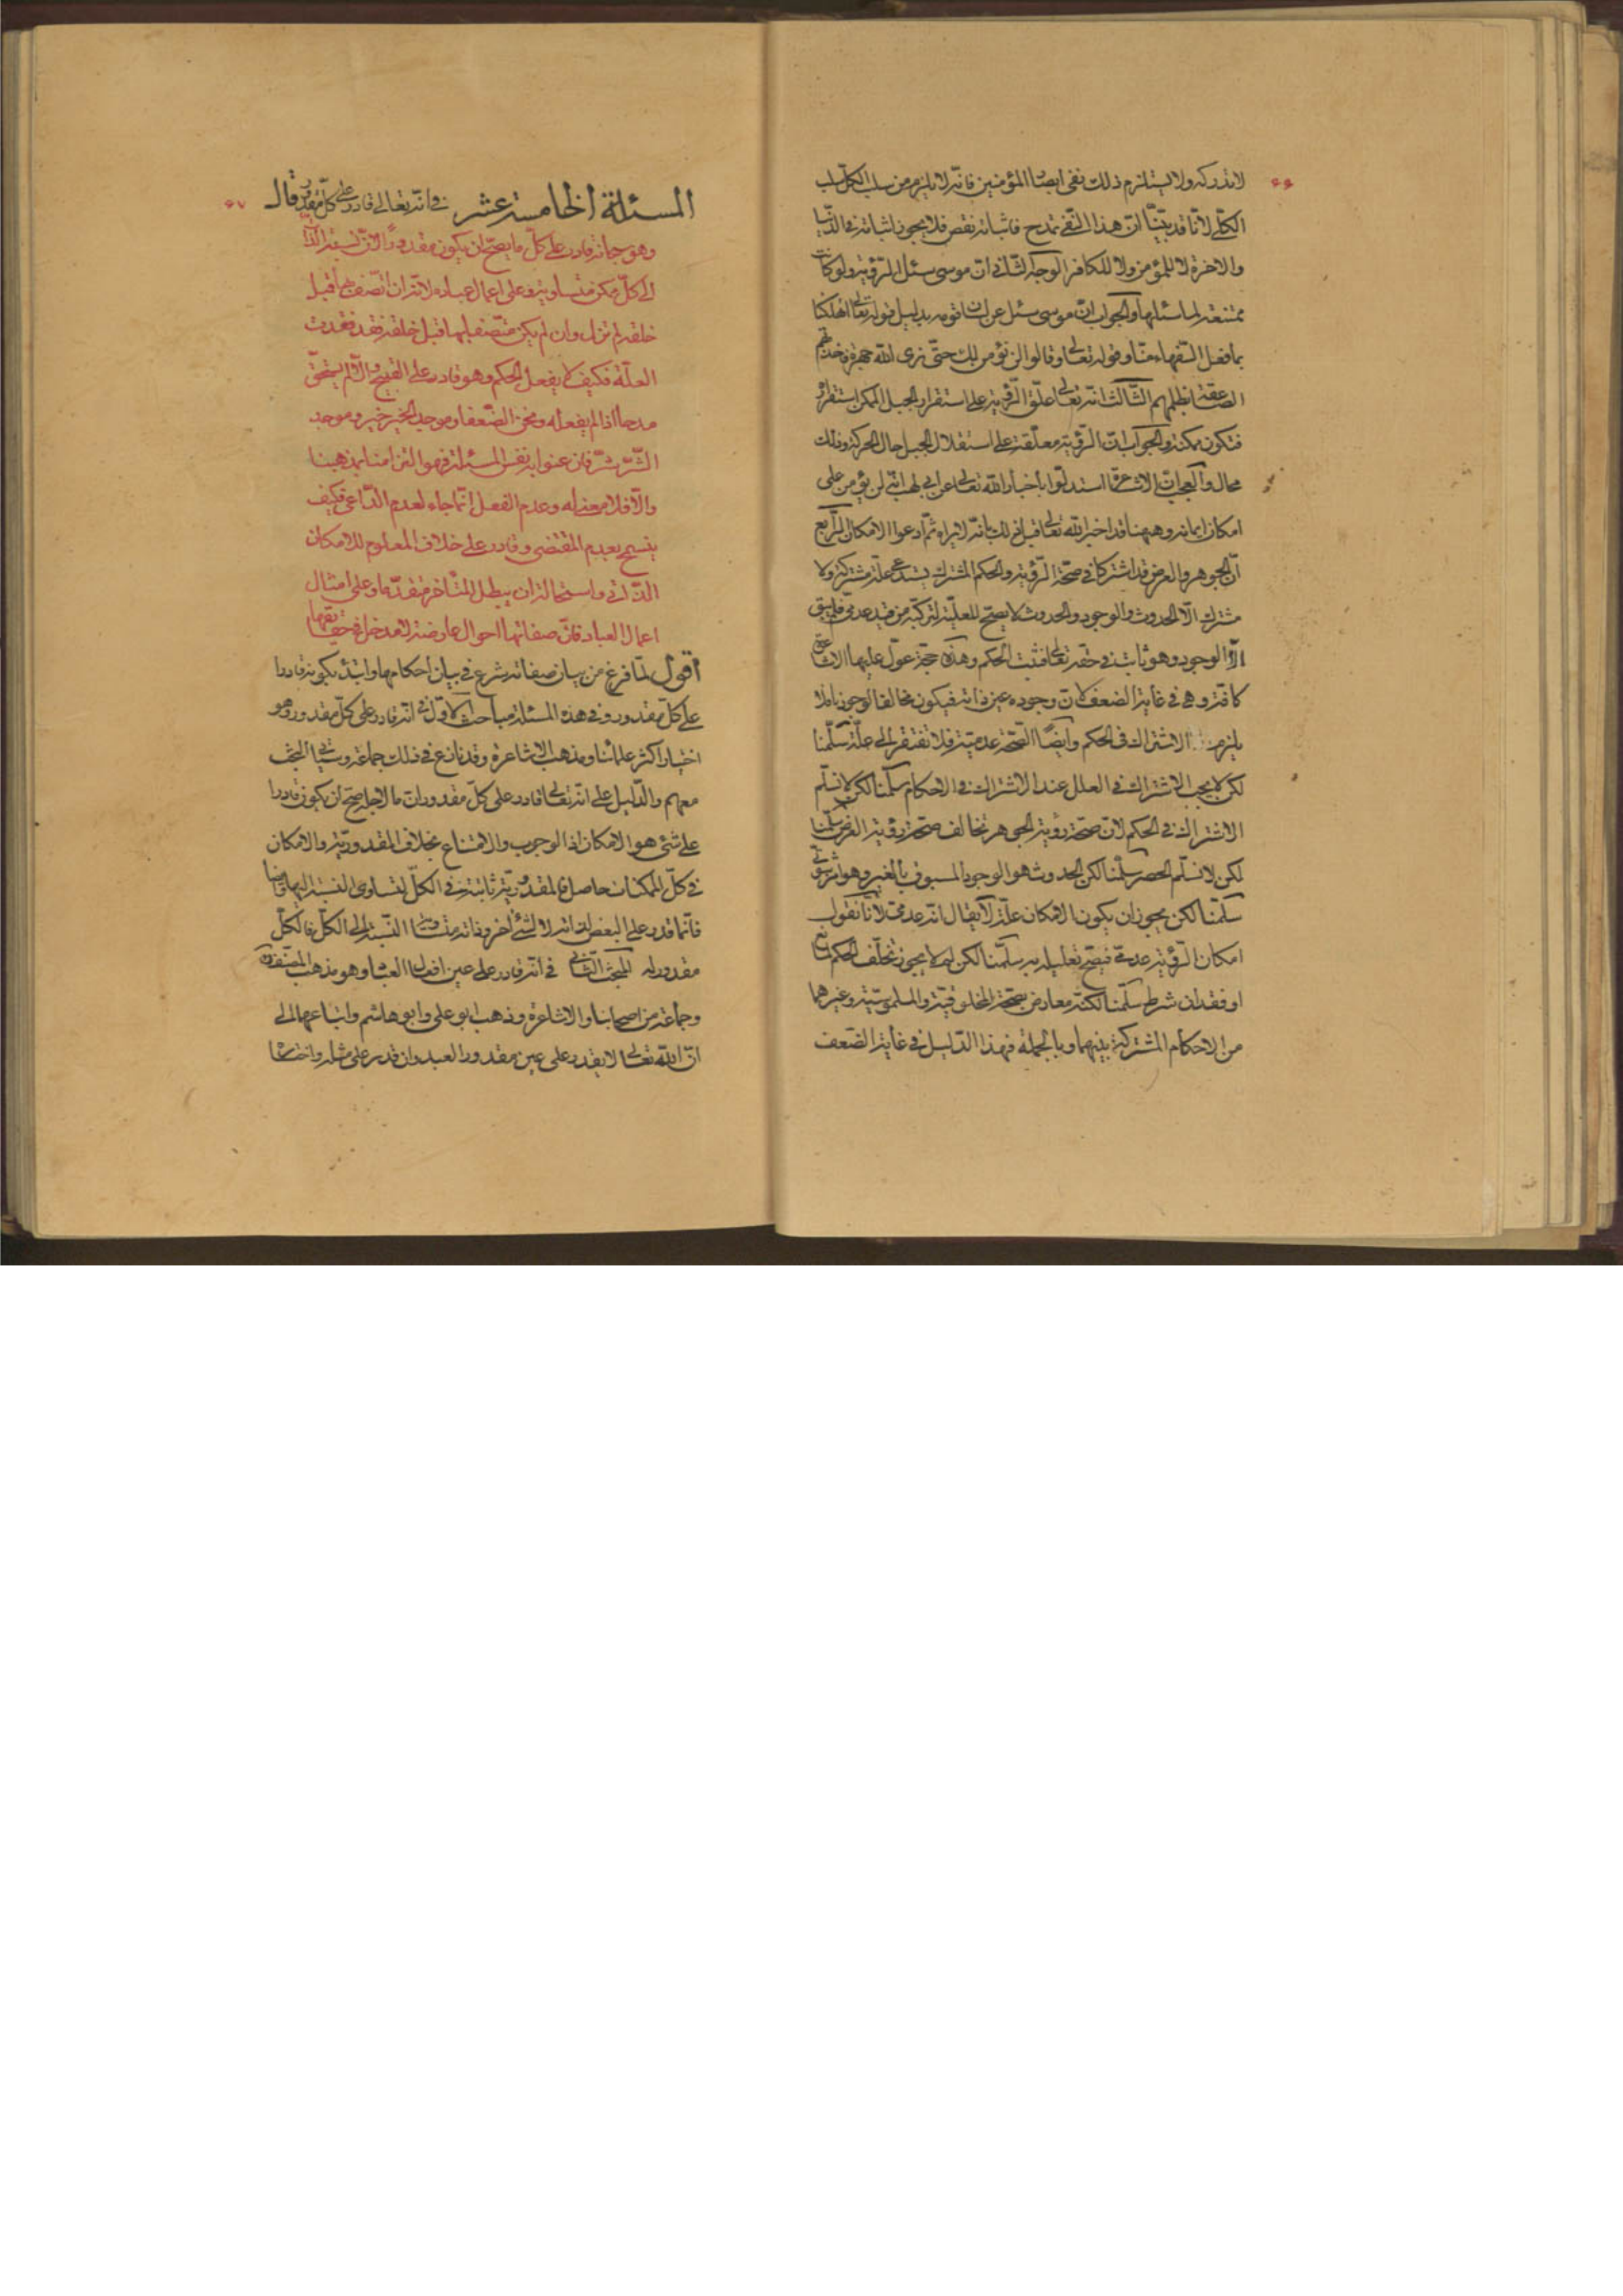 ٦٦
لا تدركه ولا يستلزم ذلك نفى ابصار المؤمنين فانه لا يلزم من سلب الكل سلب
الكلى لانا قد بيّنا ان هذا النفى تمدح فاثباته نقص فلا يجوز اثباته فى الدنيا
والاخرة لا للمؤمن ولا للكافر الوجه الثانى ان موسى سئل الرؤية ولو كانت
ممتنعة لما سئلها والجواب ان موسى سئل عن لسان قومه بدليل قوله تعالى اتهلكنا
بما فعل السفهاء منا وقوله تعالى وقالوا لن نؤمن لك حتى نرى الله جهرة فاخذتهم
الصاعقة بظلمهم الثالث انه تعالى علّق الرؤية على استقرار الجبل الممكن استقراره
فتكون ممكنة والجواب ان الرؤية معلقة على استقلال الجبل حال الحركة وذلك
محال والعجب ان الاشاعرة استدلوا باخبار الله تعالى عن ابى لهب انه لن يؤمن على
امكان ايمانه وههنا قد اخبر الله تعالى قبل ذلك بانه لا يراه ثم ادعوا الامكان الرابع
ان الجوهر والعرض قد اشتركا فى صحة الرؤية والحكم المشترك يستدعى علة مشتركة ولا
مشترك الا الحدوث والوجود والحدوث لا يصح للعلية لتركبه من قيد عدمى فلم يبق
الا الوجود وهو ثابت فى حقه تعالى فثبت الحكم وهذه حجة عوّل عليها الاشاعرة
كافة وهى فى غاية الضعف لان وجوده عين ذاته فيكون مخالفا لوجودنا فلا
يلزم الاشتراك فى الحكم وايضا الصحة عدمية فلا تفتقر الى علة سلمنا
لكن لا يجب الاشتراك فى العلل عند الاشتراك فى الاحكام سلمنا لكن لا نسلم
الاشتراك فى الحكم لان صحة رؤية الجوهر تخالف صحة رؤية العرض سلمنا
لكن لا نسلم الحصر سلمنا لكن الحدوث هو الوجود المسبوق بالغير وهو ثبوتى
سلمنا لكن يجوز ان يكون الامكان علة لا يقال انه عدمى لانا نقول
امكان الرؤية عدمى فيصح تعليله به سلمنا لكن لم لا يجوز تخلف الحكم لمانع
او فقدان شرط سلمنا لكنه معارض بصحة المخلوقية والملموسية وغيرهما
من الاحكام المشتركة بينهما وبالجملة فهذا الدليل فى غاية الضعف
٦٧
المسئلة الخامسة عشر فى انه تعالى قادر على كل مقدور قال
وهو جهانه قادر على كل ما يصح ان يكون مقدورا لان نسبة الذات
الى كل ممكن متساوية وعلى اعمال عباده لانه ان اتصف بها قبل
خلقه لم تزل وان لم يكن متصفا بها قبل خلقه فقد فقدت
العلة فكيف لا يفعل الحكم وهو قادر على القبيح والا لم يستحق
مدحا اذا لم يفعله ونحن الضعفا وموجد الخير خير وموجد
الشر شر فان عنوا به نفس المسئلة فهو التزامنا بمذهبنا
والا فلا معنى له وعدم الفعل انما جاء لعدم الداعى فكيف
بعدم المقتضى وقادر على خلاف المعلوم للامكان
الذاتى واستحالة ان يبطل المتاخر متقدما وعلى امثال
اعمال العباد فان صفاتها احوال عارضة لا مدخل فى حقايقها
اقول لما فرغ من بيان صفاته شرع فى بيان احكامها وابتدء بكونه قادرا
على كل مقدور وفى هذه المسئلة مباحث الاول فى انه قادر على كل مقدور وهو
اختيار اكثر علمائنا ومذهب الاشاعرة وقد نازع فى ذلك جماعة وسياتى البحث
معهم والدليل على انه تعالى قادر على كل مقدور ان ما لاجله صح ان يكون قادرا
على شئ هو الامكان اذ الوجوب والامتناع بخلاف المقدورية والامكان
فى كل الممكنات حاصل فالمقدورية ثابتة فى الكل لتساوى النسبة اليها وايضا
فانما قدر على البعض لذاته لا لشئ آخر وذاته متساوية النسبة الى الكل فالكل
مقدور له البحث الثانى فى انه قادر على عين افعال العباد وهو مذهب المصنف
وجماعة من اصحابنا والاشاعرة وذهب ابو على وابو هاشم واتباعهما الى
ان الله تعالى لا يقدر على عين مقدور العبد وان قدر على مثله